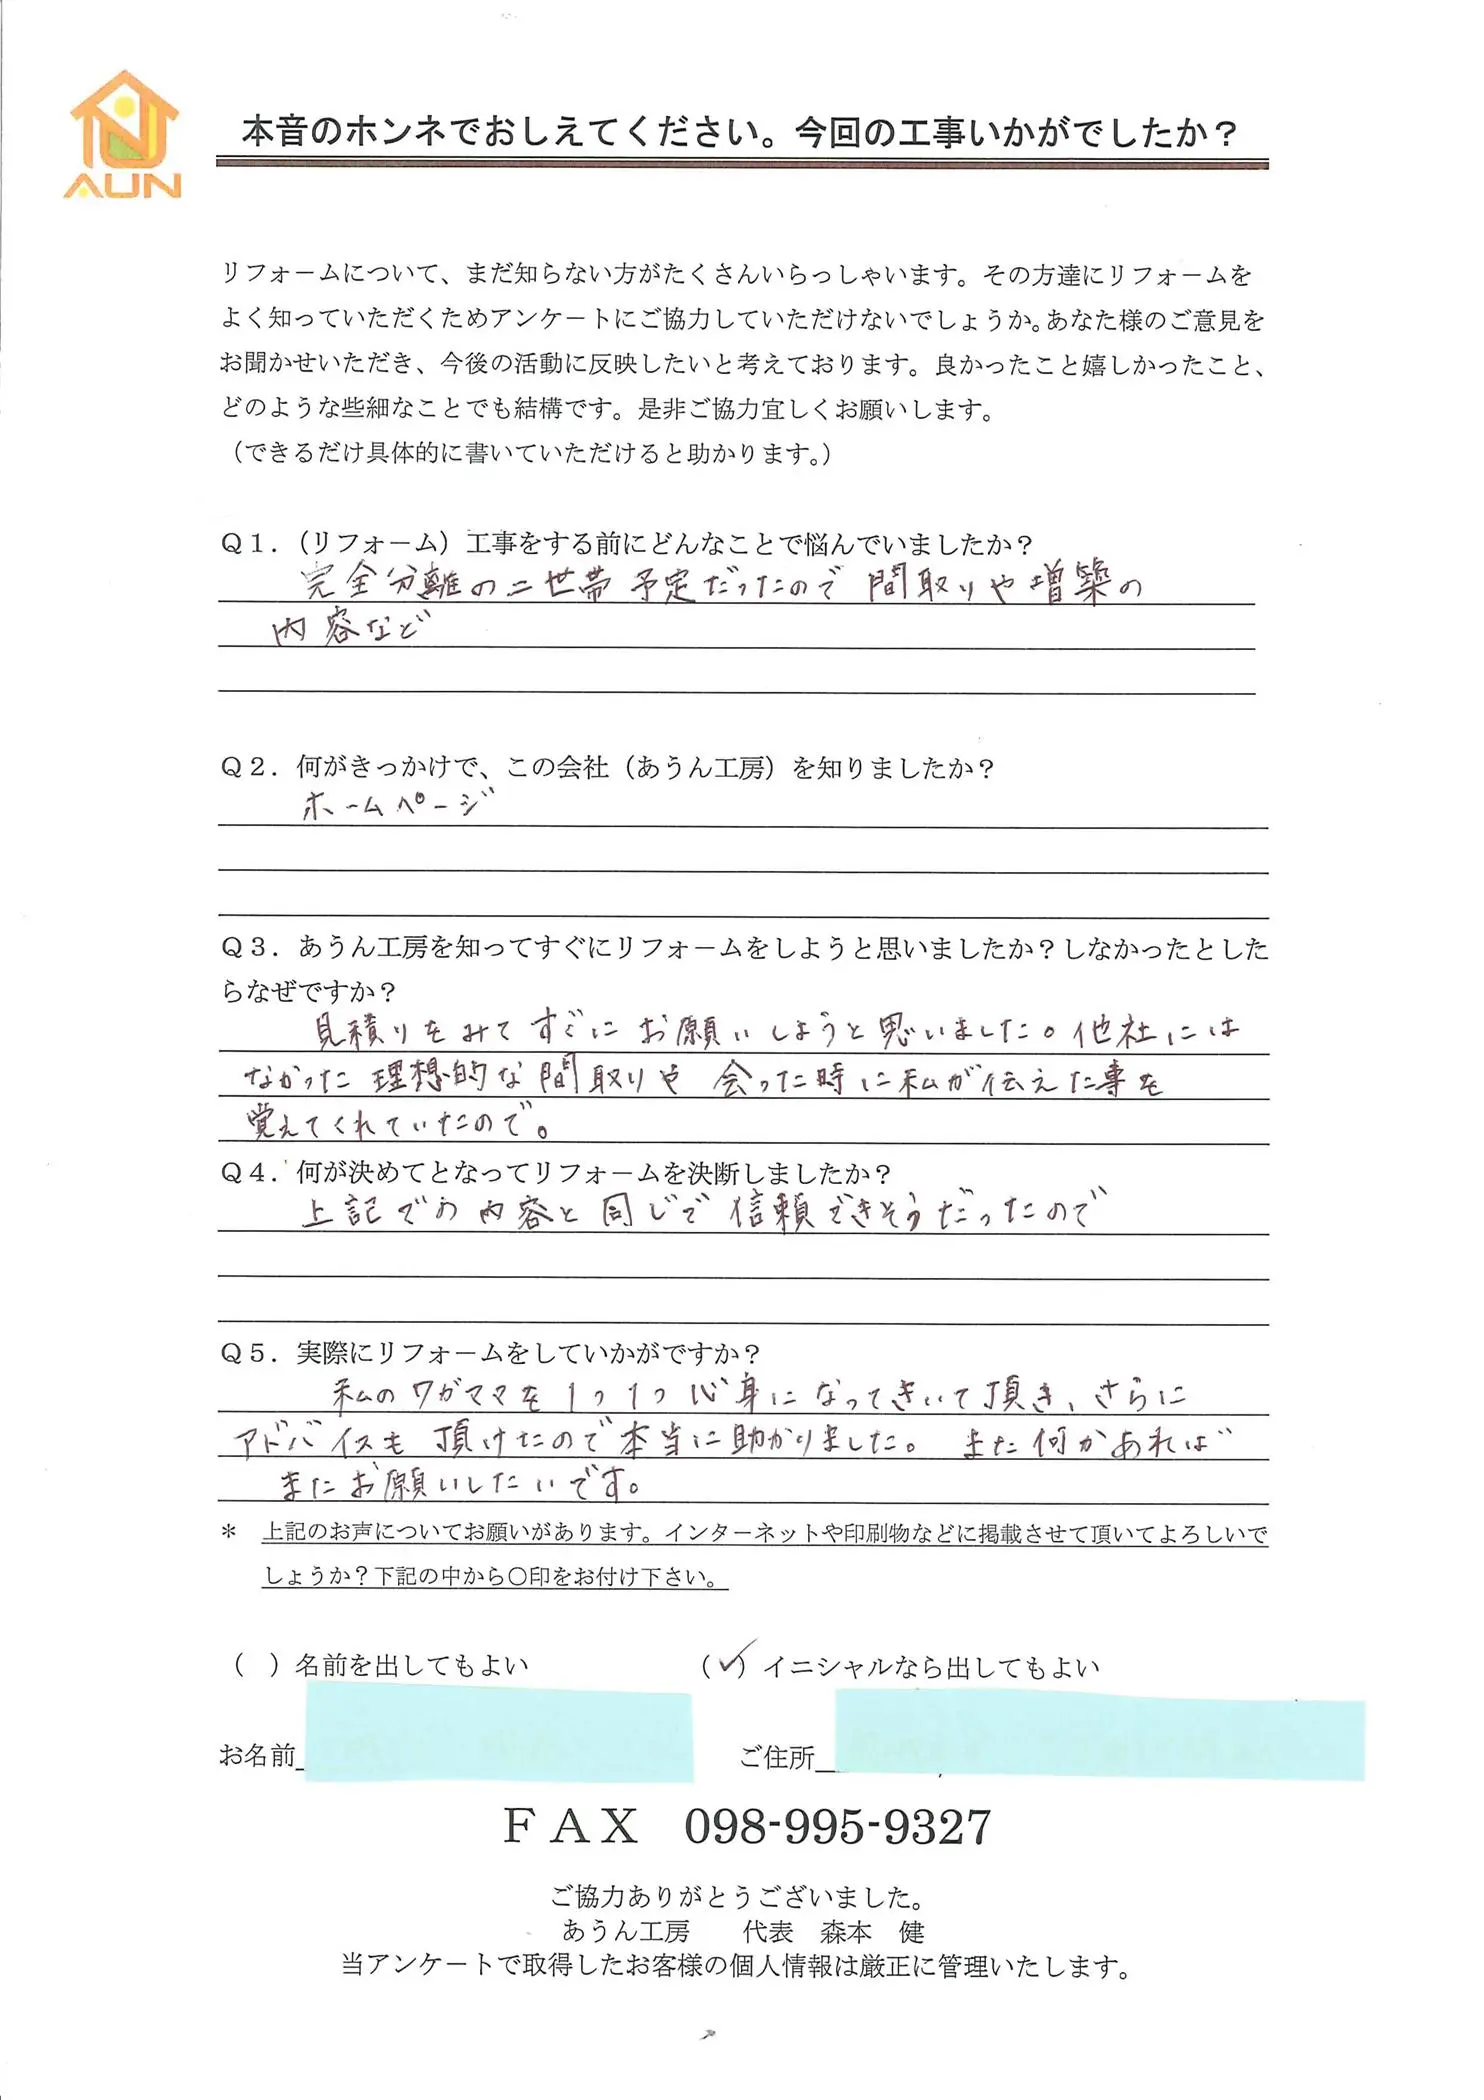 AUN
本音のホンネでおしえてください。今回の工事いかがでしたか？
リフォームについて、まだ知らない方がたくさんいらっしゃいます。その方達にリフォームを
よく知っていただくためアンケートにご協力していただけないでしょうか。あなた様のご意見を
お聞かせいただき、今後の活動に反映したいと考えております。良かったこと嬉しかったこと、
どのような些細なことでも結構です。是非ご協力宜しくお願いします。
（できるだけ具体的に書いていただけると助かります。）
Ｑ１．（リフォーム）工事をする前にどんなことで悩んでいましたか？
完全分離の二世帯予定だったので間取りや増築の
内容など
Ｑ２．何がきっかけで、この会社（あうん工房）を知りましたか？
ホームページ
Ｑ３．あうん工房を知ってすぐにリフォームをしようと思いましたか？しなかったとした
らなぜですか？
見積りをみてすぐにお願いしようと思いました。他社には
なかった理想的な間取りや会った時に私が伝えた事を
覚えてくれていたので。
Ｑ４．何が決めてとなってリフォームを決断しましたか？
上記での内容と同じで信頼できそうだったので
Ｑ５．実際にリフォームをしていかがですか？
私のワガママを１つ１つ心身になってきいて頂き、さらに
アドバイスも頂けたので本当に助かりました。また何かあれば
またお願いしたいです。
＊　上記のお声についてお願いがあります。インターネットや印刷物などに掲載させて頂いてよろしいで
しょうか？下記の中から〇印をお付け下さい。
（　）名前を出してもよい　（✓）イニシャルなら出してもよい
お名前　ご住所
ＦＡＸ　098-995-9327
ご協力ありがとうございました。
あうん工房　代表　森本　健
当アンケートで取得したお客様の個人情報は厳正に管理いたします。